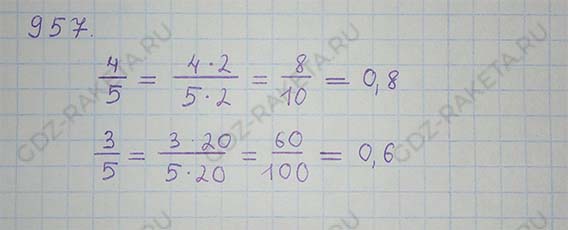 957.
4/5 = 4·2/5·2 = 8/10 = 0,8
3/5 = 3·20/5·20 = 60/100 = 0,6
GDZ-RAKETA.RU
GDZ-RAKETA.RU
GDZ-RAKETA.RU
GDZ-RAKETA.RU